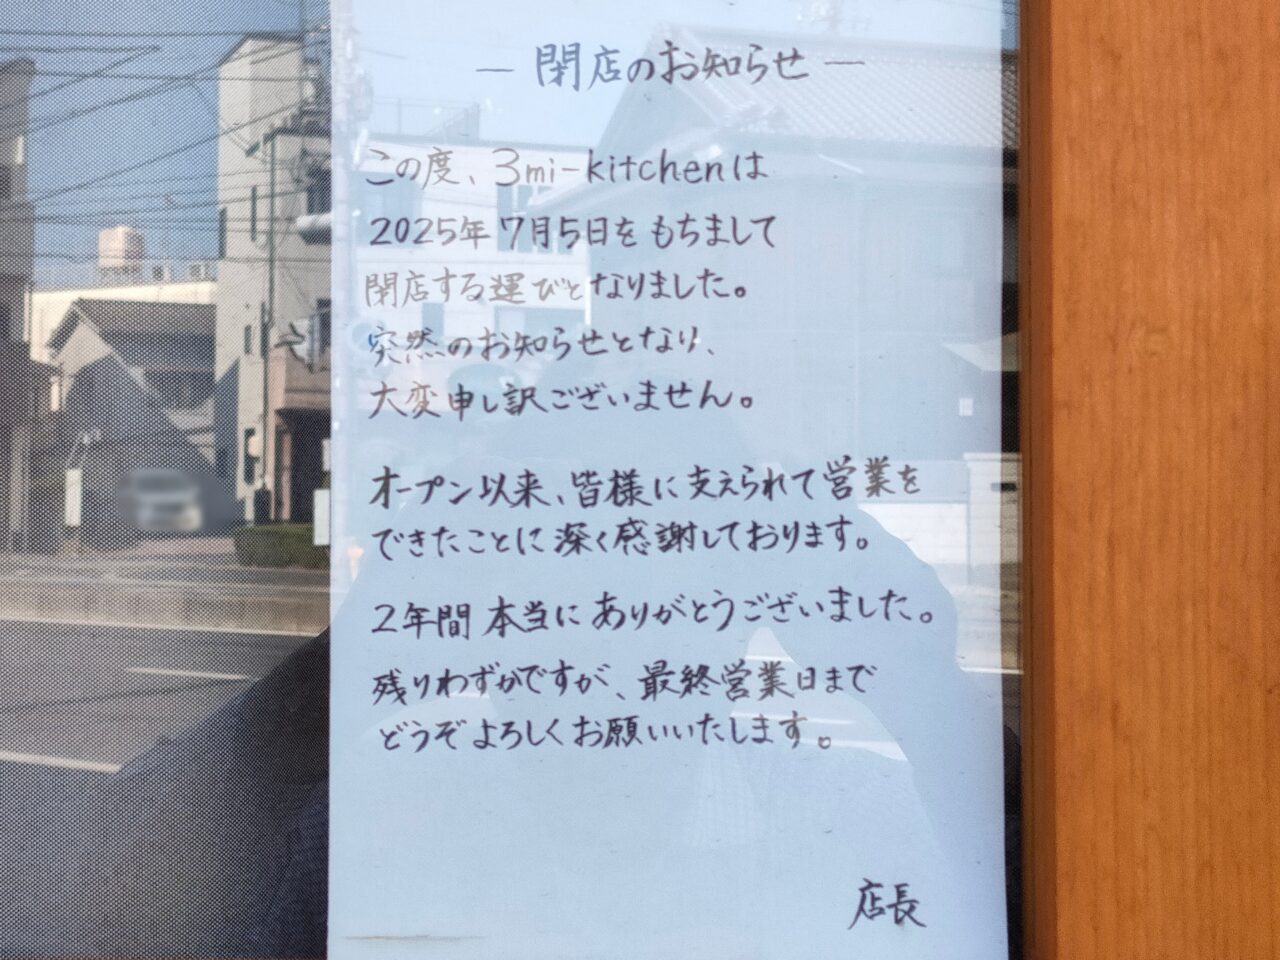 ― 閉店のお知らせ ―
この度、3mi-kitchenは
2025年7月5日をもちまして
閉店する運びとなりました。
突然のお知らせとなり、
大変申し訳ございません。
オープン以来、皆様に支えられて営業を
できたことに深く感謝しております。
2年間本当にありがとうございました。
残りわずかですが、最終営業日まで
どうぞよろしくお願いいたします。
店長